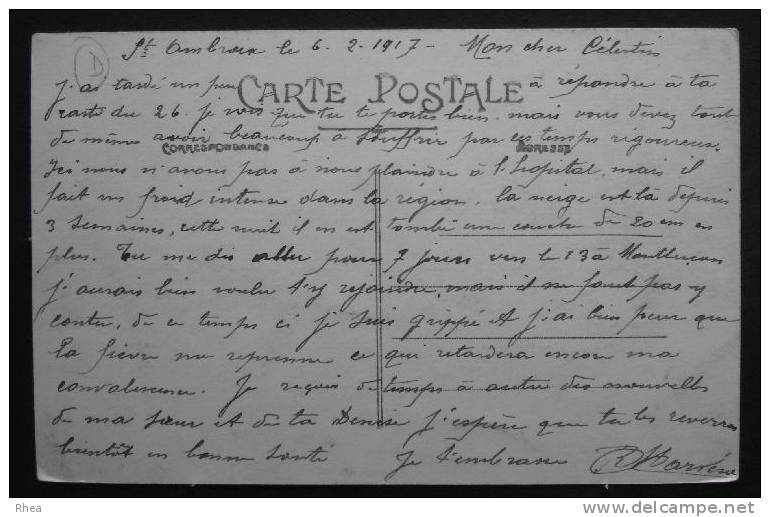 D
St Ambroix le 6. 2. 1917 - Mon cher Célestin
J'ai tardé un peu à répondre à ta
CARTE POSTALE
carte du 26. je vois que tu te portes bien, mais vous devez tout
de même avoir beaucoup à souffrir par ces temps rigoureux.
CORRESPONDANCE ADRESSE
Ici nous n'avons pas à nous plaindre à l'hopital, mais il
fait un froid intense dans la région, la neige est là depuis
3 semaines, cette nuit il en est tombé une couche de 20 cm en
plus. Tu me dis aller pour 7 jours vers le 13 à Montluçon
j'aurais bien voulu t'y rejoindre, mais il ne faut pas y
conter, de ce temps ci je suis grippé et j'ai bien peur que
la fièvre me reprenne ce qui retardera encore ma
convalescence. Je reçois de temps à autre des nouvelles
de ma sœur et de ta Denise j'espère que tu les reverras
bientôt en bonne santé Je t'embrasse
Rhea
http://www.delcampe.net